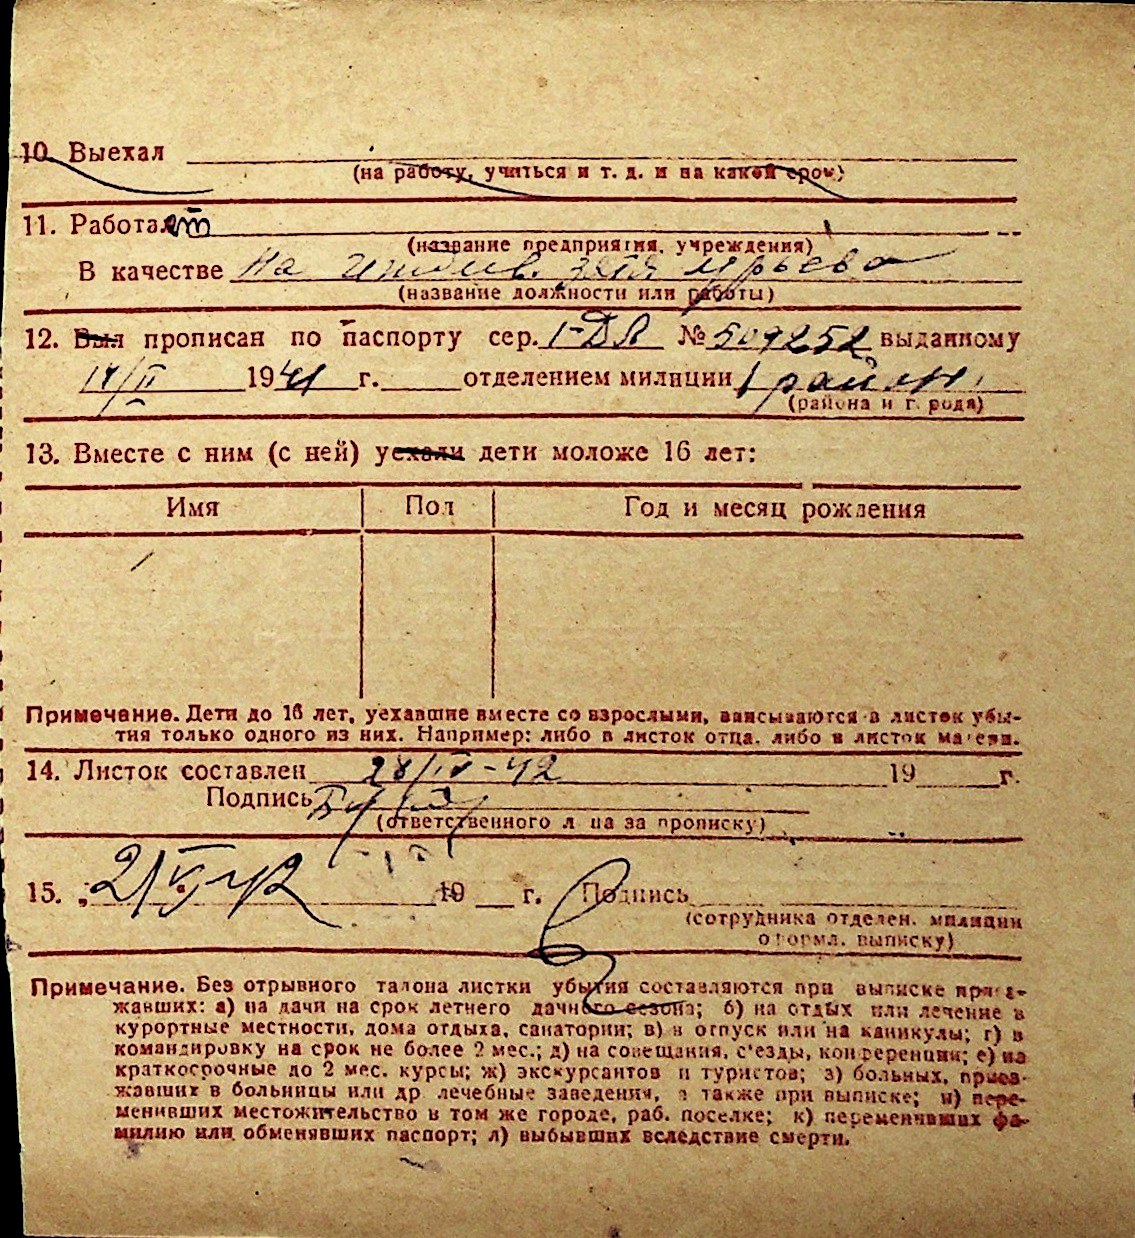 10. Выехал
(на работу, учиться и т. д. и на какой срок)
11. Работает
(название предприятия, учреждения)
В качестве На иждив. зятя
(название должности или работы)
12. Был прописан по паспорту сер. I-ДЛ № 509252 выданному
14/II 1941 г. отделением милиции 1 район.
(района и города)
13. Вместе с ним (с ней) уехали дети моложе 16 лет:
Имя Пол Год и месяц рождения
Примечание. Дети до 16 лет, уехавшие вместе со взрослыми, вписываются в листок убы-
тия только одного из них. Например: либо в листок отца, либо в листок матери.
14. Листок составлен 28/IV-42 19 г.
Подпись
(ответственного лица за прописку)
15. „ 2/V 42 19 г. Подпись
(сотрудника отделен. милиции
оформл. выписку)
Примечание. Без отрывного талона листки убытия составляются при выписке приез-
жавших: а) на дачи на срок летнего дачного сезона; б) на отдых или лечение в
курортные местности, дома отдыха, санатории; в) в отпуск или на каникулы; г) в
командировку на срок не более 2 мес.; д) на совещания, с'езды, конференции; е) на
краткосрочные до 2 мес. курсы; ж) экскурсантов и туристов; з) больных, приез-
жавших в больницы или др лечебные заведения, а также при выписке; и) пере-
менивших местожительство в том же городе, раб. поселке; к) переменивших фа-
милию или обменявших паспорт; л) выбывших вследствие смерти.